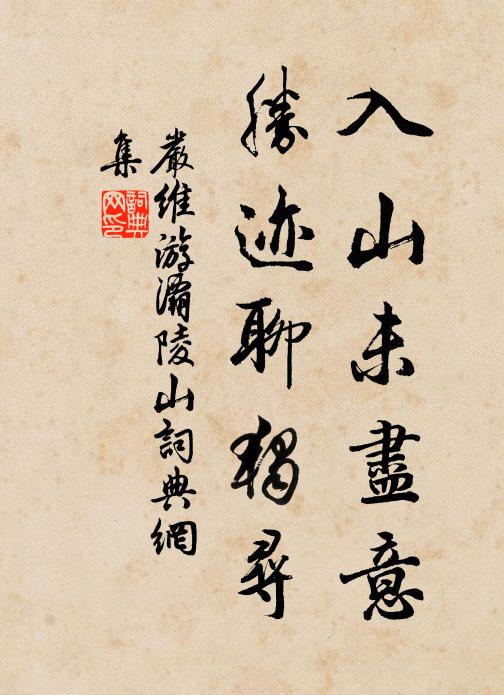 入山未盡意
勝迹聊獨尋
嚴維游灞陵山詞典網
集
詞典
网印